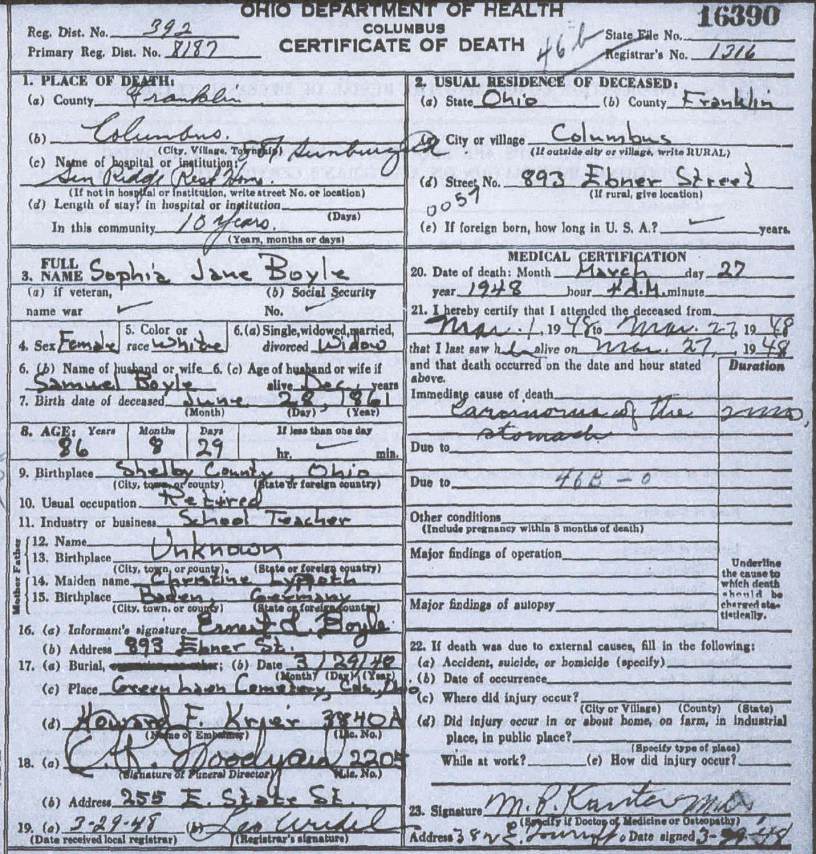 OHIO DEPARTMENT OF HEALTH
COLUMBUS
CERTIFICATE OF DEATH
16390
Reg. Dist. No. 392
Primary Reg. Dist. No. 8187
46b
State File No.
Registrar's No. 1316
1. PLACE OF DEATH:
(a) County Franklin
(b) Columbus.
(City, Village, Township)
(c) Name of hospital or institution:
Rest Home
(If not in hospital or institution, write street No. or location)
(d) Length of stay: in hospital or institution
(Days)
In this community 10 years.
(Years, months or days)
2. USUAL RESIDENCE OF DECEASED:
(a) State Ohio (b) County Franklin
(c) City or village Columbus
(If outside city or village, write RURAL)
(d) Street No. 893 Ebner Street
(If rural, give location)
0057
(e) If foreign born, how long in U. S. A.? years.
3. FULL NAME Sophia Jane Boyle
(a) if veteran, name war
(b) Social Security No.
4. Sex Female
5. Color or race White
6. (a) Single, widowed, married, divorced Widow
6. (b) Name of husband or wife Samuel Boyle
6. (c) Age of husband or wife if alive Dec. years
7. Birth date of deceased June 28, 1861
(Month) (Day) (Year)
8. AGE: Years Months Days If less than one day
86 8 29 hr. min.
9. Birthplace Shelby County, Ohio
(City, town, or county) (State or foreign country)
10. Usual occupation Retired
11. Industry or business School Teacher
Mother Father
12. Name Unknown
13. Birthplace
(City, town, or county) (State or foreign country)
14. Maiden name Christine
15. Birthplace Baden, Germany
(City, town, or county) (State or foreign country)
16. (a) Informant's signature Ernest L. Boyle
(b) Address 893 Ebner St.
17. (a) Burial, (b) Date 3/29/48
(Month) (Day) (Year)
(c) Place Green Lawn Cemetery, Cols., Ohio
(d) Howard F. Krier 3840A
(Name of Embalmer) (Lic. No.)
18. (a) Woodyard 2205
(Signature of Funeral Director) (Lic. No.)
(b) Address 255 E. State St.
19. (a) 3-29-48 (b)
(Date received local registrar) (Registrar's signature)
MEDICAL CERTIFICATION
20. Date of death: Month March day 27
year 1948 hour 4 A.M. minute
21. I hereby certify that I attended the deceased from
Mar. 1, 1948 to Mar. 27, 1948
that I last saw her alive on Mar. 27, 1948
and that death occurred on the date and hour stated above.
Duration
Immediate cause of death
carcinoma of the stomach
2 mos.
Due to
Due to 46B - 0
Other conditions
(Include pregnancy within 3 months of death)
Major findings of operation
Major findings of autopsy
Underline the cause to which death should be charged statistically.
22. If death was due to external causes, fill in the following:
(a) Accident, suicide, or homicide (specify)
(b) Date of occurrence
(c) Where did injury occur?
(City or Village) (County) (State)
(d) Did injury occur in or about home, on farm, in industrial
place, in public place?
(Specify type of place)
While at work? (e) How did injury occur?
23. Signature M. P. Kanter M.D.
(Specify if Doctor of Medicine or Osteopathy)
Address Date signed 3-29-48